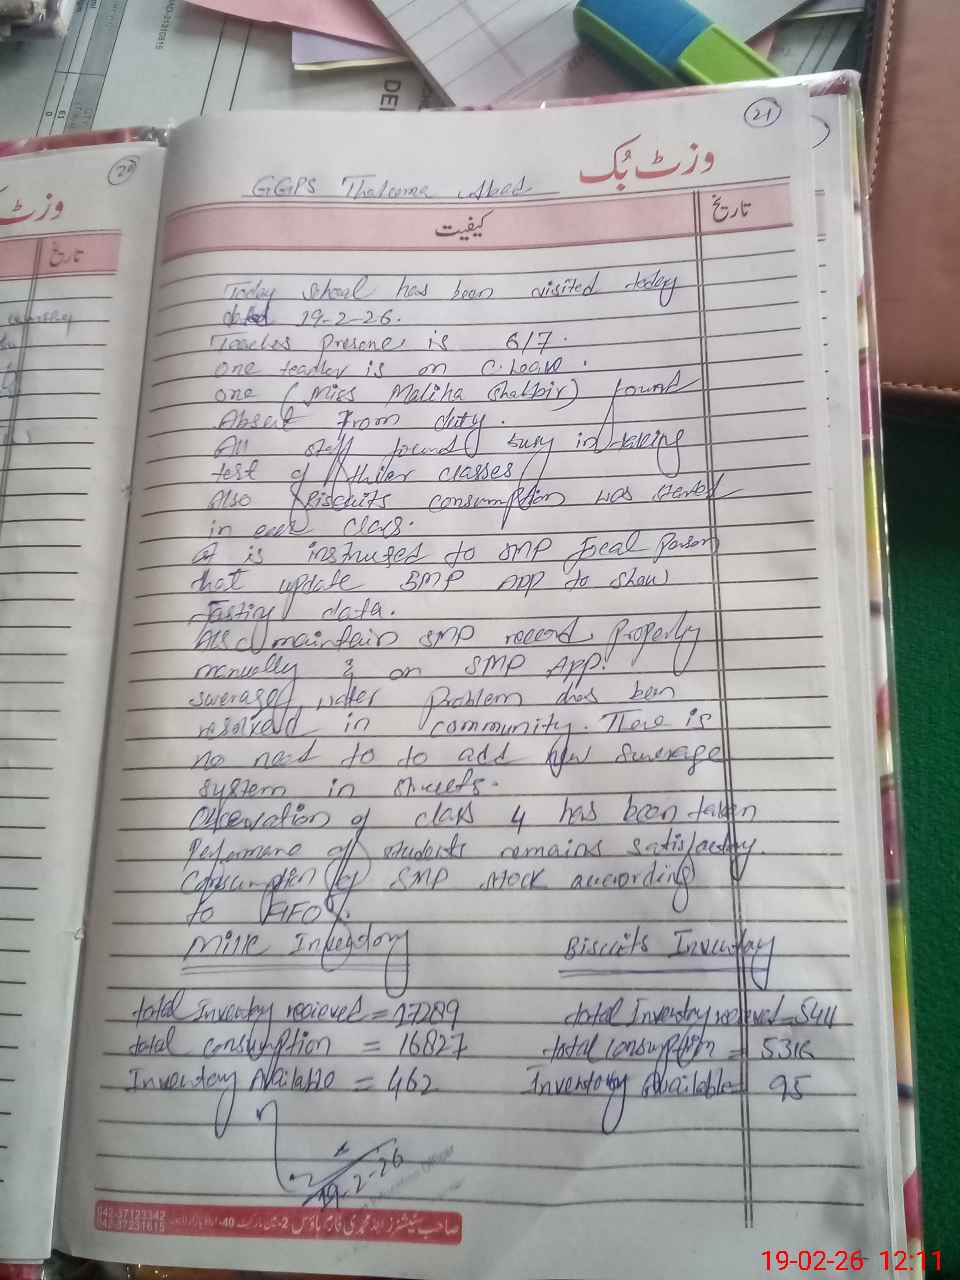 21
وزٹ بُک
GGPS Thalcome Abad
کیفیت
تاریخ
Today school has been visited today
dated 19-2-26.
Teaches Presene is 6/7.
one teacher is on C.Leave.
one (Miss Maliha Shabbir) found
Absent From duty.
All staff found busy in taking
test of thier classes
Also Biscuits consumption was
in each class.
it is instruced to SMP Focal Person
that update SMP APP to show
Tasting data.
Also maintain SMP record Properly
manually & on SMP APP.
swerage water Problem has been
resolved in community. There is
no need to to add new swerage
system in streets.
Observation of class 4 has been taken
Performane of students remains satisfactory.
Consumption of SMP stock according
to FIFO.
Milk Inventory
Biscuits Inventory
total Inventory recieved = 17289
total Inventory recieved = 5411
total consumption = 16827
total consumption = 5316
Inventory Available = 462
Inventory Available = 95
19-2-26
042-37123342
042-37231615
20
وزٹ
تاریخ
19-02-26 12:11